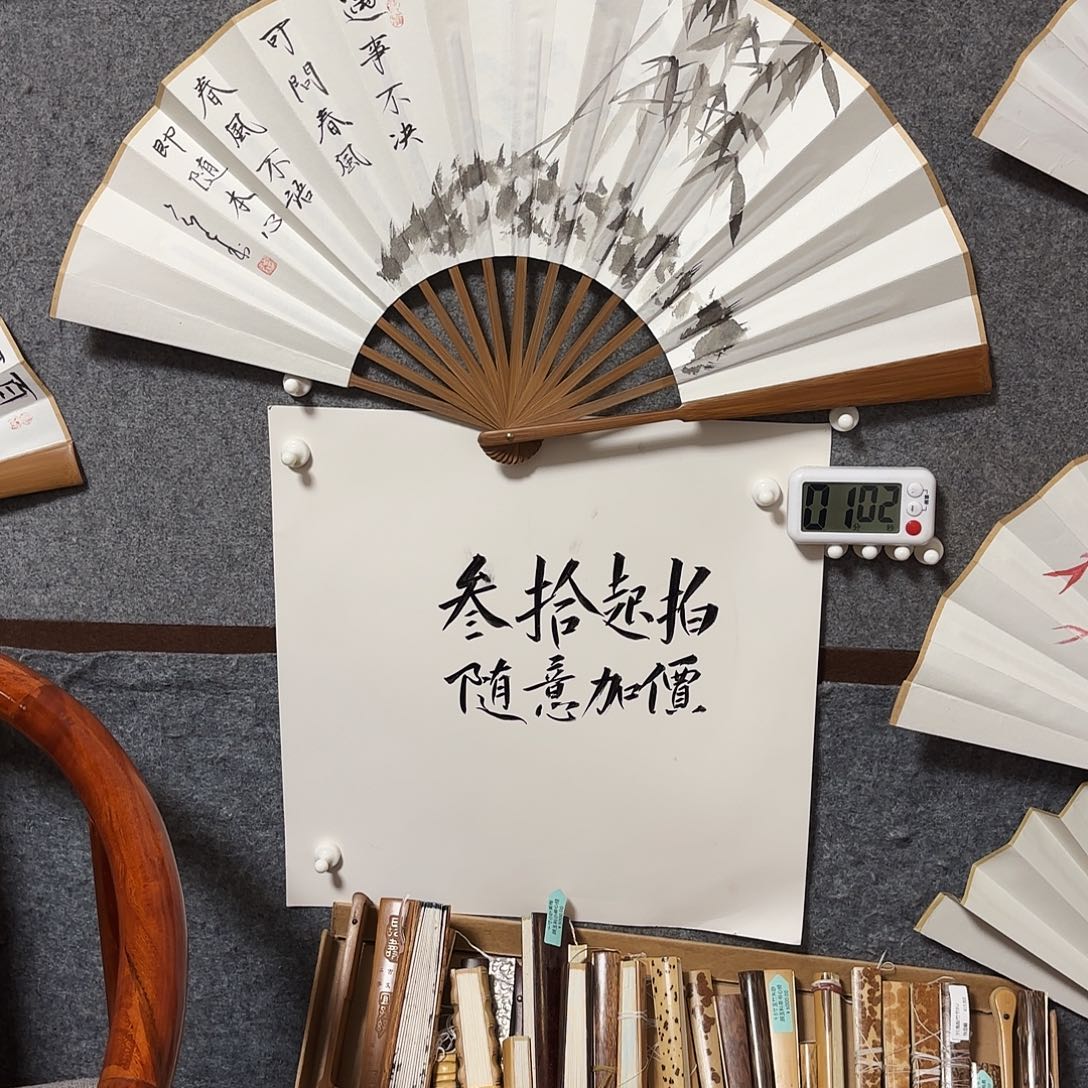 遇事不决
可問春風
春風不語
即随本心
叁拾起拍
随意加價
01 02
分 秒